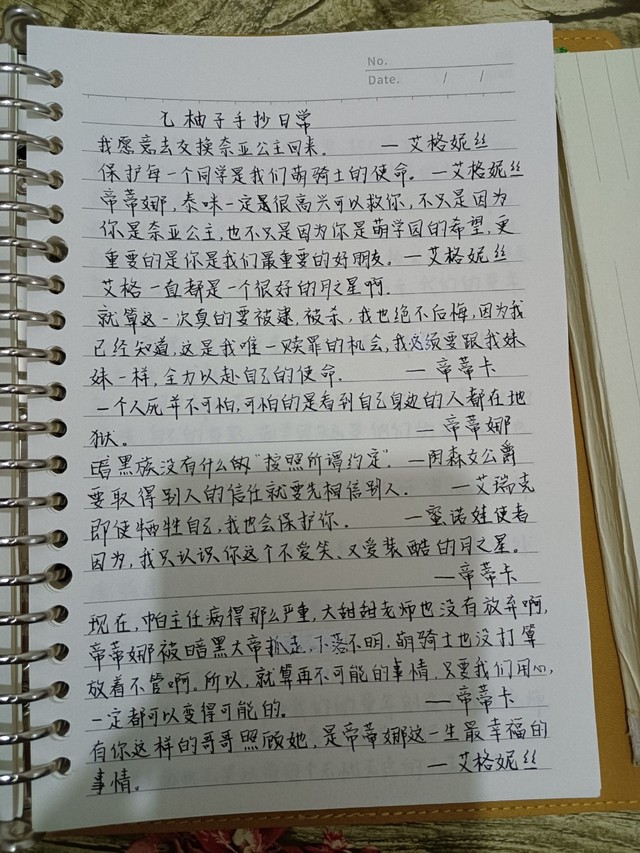 No.
Date. / /
乙柚子手抄日常
我愿意去交换奈亚公主回来. —艾格妮丝
保护每一个同学是我们萌骑士的使命。—艾格妮丝
帝蒂娜,泰咪一定是很高兴可以救你,不只是因为
你是奈亚公主,也不只是因为你是萌学园的希望,更
重要的是你是我们最重要的好朋友。—艾格妮丝
艾格一直都是一个很好的月之星啊.
就算这一次真的要被逮,被杀,我也绝不后悔,因为我
已经知道,这是我唯一赎罪的机会,我必须要跟我妹
妹一样,全力以赴自己的使命. —帝蒂卡
一个人死并不可怕,可怕的是看到自己身边的人都在地
狱。 —帝蒂娜
暗黑族没有什么的"按照所谓约定". —闵森文公爵
要取得别人的信任就要先相信别人. —艾瑞克
即使牺牲自己,我也会保护你. —蜜诺娃使者
因为,我只认识你这个不爱笑、又爱装酷的月之星。
—帝蒂卡
现在,帕主任病得那么严重,大甜甜老师也没有放弃啊,
帝蒂娜被暗黑大帝抓走,下落不明,萌骑士也没打算
放着不管啊。所以,就算再不可能的事情,只要我们用心,
一定都可以变得可能的。 —帝蒂卡
有你这样的哥哥照顾她,是帝蒂娜这一生最幸福的
事情。 —艾格妮丝